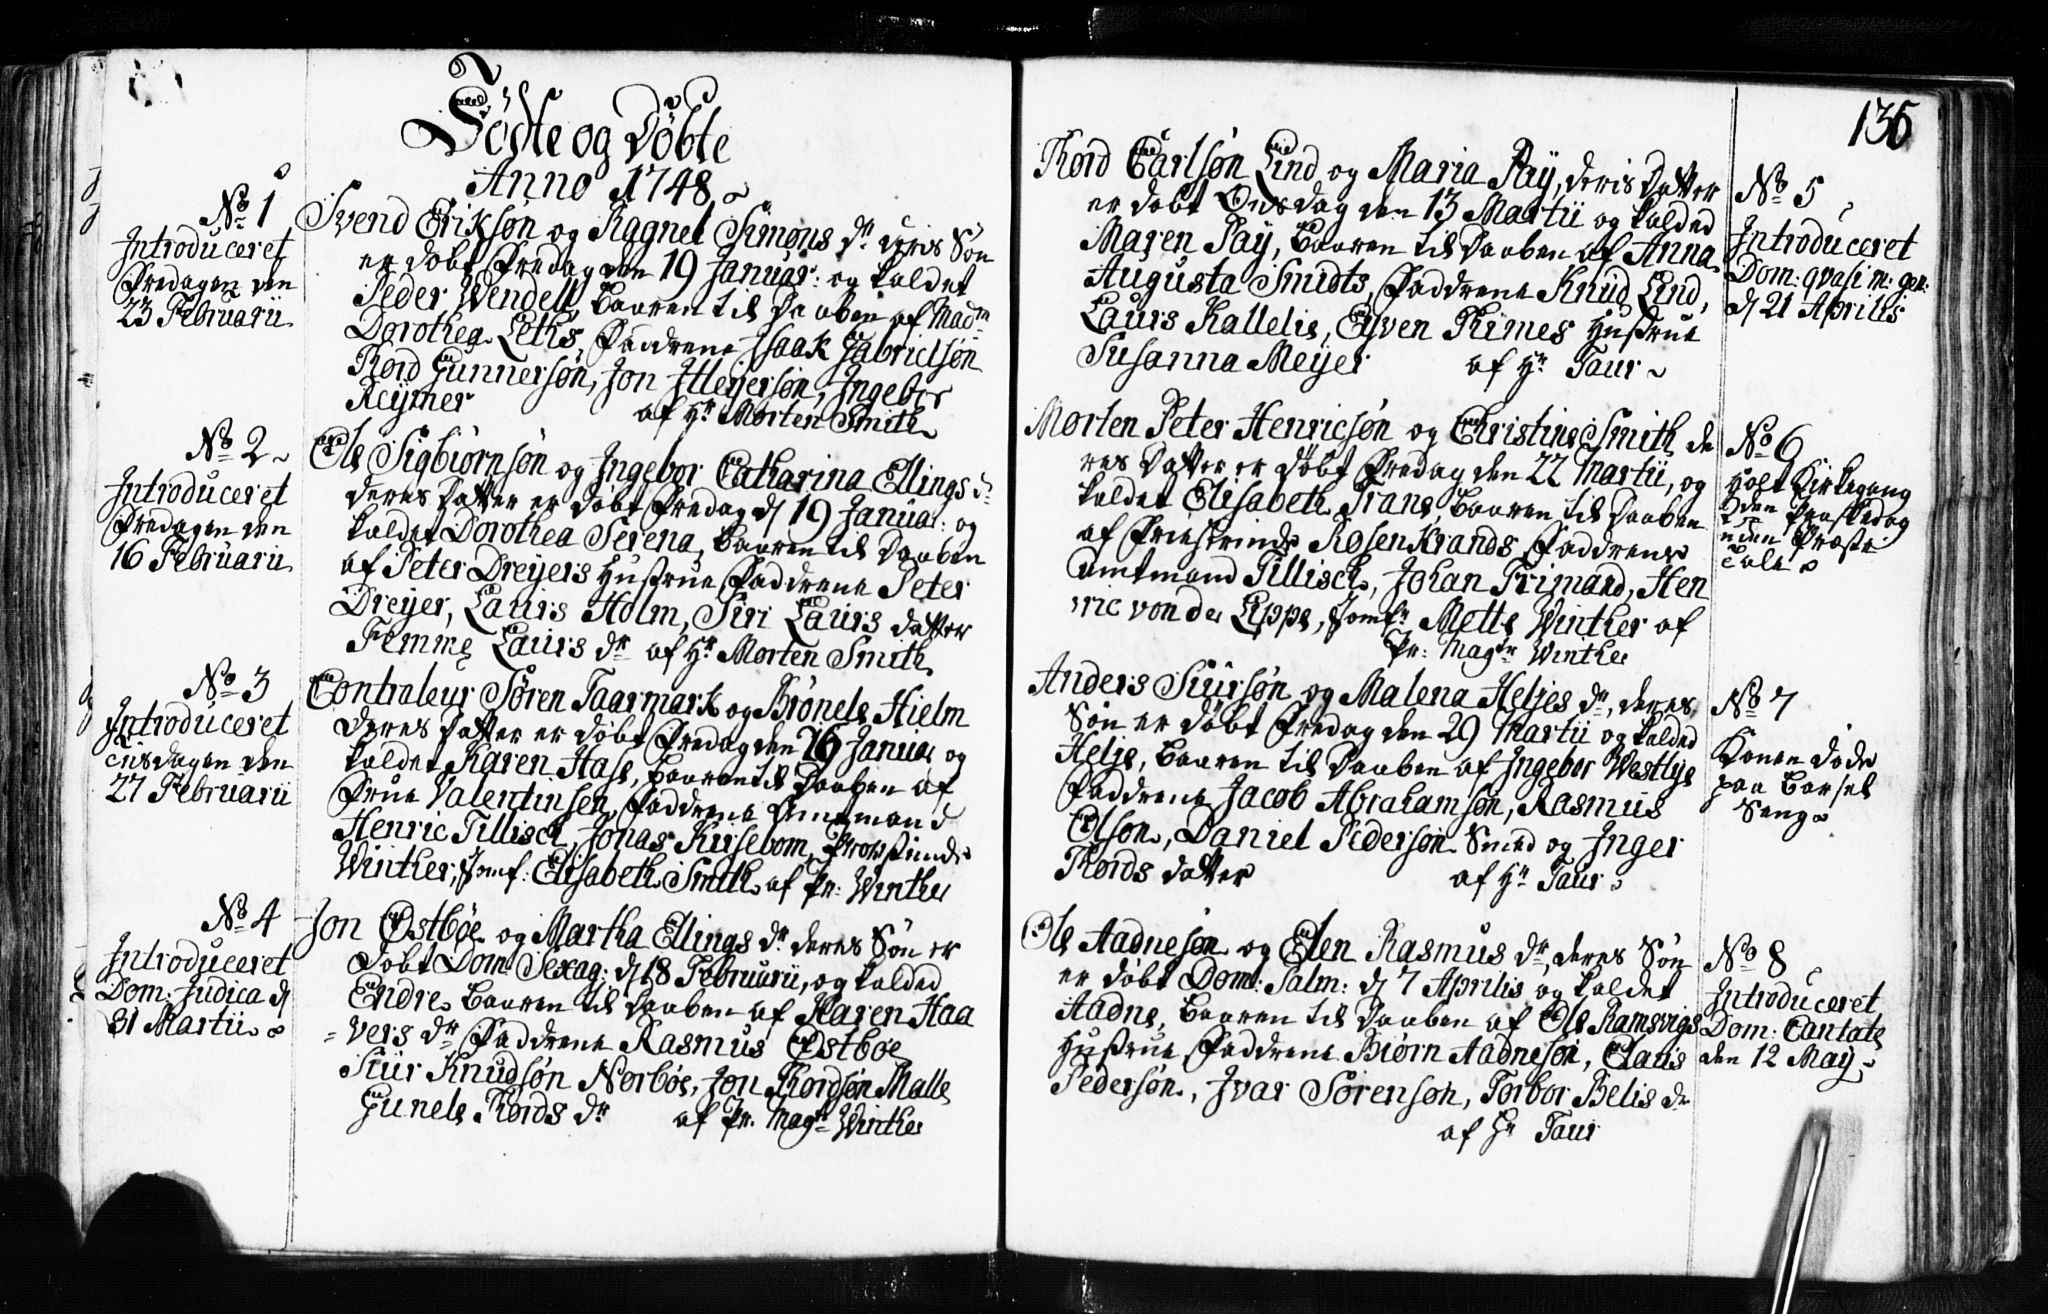 Fødte og Døbte
Anno 1748
No 1
Introduceret
Fredagen den
23 Februarii
Svend Eriksøn og Ragnel Simons dr deris Søn
er døbt Fredag den 19 Januar: og kaldet
Peder Wendell, baaren til Daaben af Madm
Dorothea Leths, Faddrene Isaak Gabrielsøn
Thord Gunnersøn, Jon Meyersøn, Ingebor
Reymer af Hr Morten Smith
No 2
Introduceret
Fredagen den
16 Februarii
Ole Sigbiørnsøn og Ingebor Catharina Ellings dr
deres Datter er døbt Fredag d 19 Januar: og
kaldet Dorothea Serena, baaren til Daaben
af Peter Dreyers Hustrue Faddrene Peter
Dreyer, Laurs Holm, Siri Laurs datter
Temme Laurs dr af Hr Morten Smith
No 3
Introduceret
Tisdagen den
27 Februarii
Contraleur Søren Taarmark og Brønele Hielm
deres Datter er døbt Fredag den 26 Januar og
kaldet Karen Hase, baaren til Daaben af
Frue Valentinsen, Faddrene Amtmand
Henric Tillisch, Jonas Kirsebom, Provstinde
Winther, Jomf: Elisabeth Smith af Pr: Winther
No 4
Introduceret
Dom: Judica d
31 Martii
Jon Østbøe og Martha Ellings dr deres Søn er
døbt Dom: Sexag: d 18 Februarii, og kaldet
Endre baaren til Daaben af Karen Haa
vers dr Faddrene Rasmus Østbøe
Siur Knudsøn Norbøe, Jon Thordsøn Malle
Gunele Thords dr af Pr: Magr Winther
136
Thord Carlsøn Lind og Maria Pay, deris Datter
er døbt Onsdag den 13 Martii og kaldet
Maren Pay, baaren til Daaben af Anna
Augusta Smidts, Faddrene Knud Lind,
Laurs Kallelie, Eyven Thimes Hustrue
Susanna Meyer af Hr Taur
No 5
Introduceret
Dom: qvasim: gen:
d 21 Aprilis
Morten Peter Henricsøn og Christine Smith de
res Datter er døbt Fredag den 22 Martii, og
kaldet Elisabeth Trane baaren til Daaben
af Frierinde Rosenkrands Faddrene
Amtmand Tillisch, Johan Frimand, Hen
ric von der Lippe, Jomfr Mette Winther af
Pr: Magr Winther
No 6
holt Kirkegang
2den Paaskedag
uden Præste
Tale
Anders Siursøn og Malena Heljes dr, deres
Søn er døbt Fredag den 29 Martii og kaldet
Helje, baaren til Daaben af Ingebor Westlye
Faddrene Jacob Abrahamsøn, Rasmus
Olson, Daniel Pedersøn Smed og Inger
Thords datter af Hr Taur
No 7
Konen døde
paa Barsel
Seng
Ole Aadnesøn og Elen Rasmus dr, deres Søn
er døbt Dom: Palm: d 7 Aprilis og kaldet
Aadne, baaren til Daaben af Ole Ramsvigs
Hustrue Faddrene Biørn Aadnesøn, Claus
Pedersøn, Ivar Sørensøn, Torbor Belis dr
af Hr Taur
No 8
Introduceret
Dom: Cantate
den 12 May